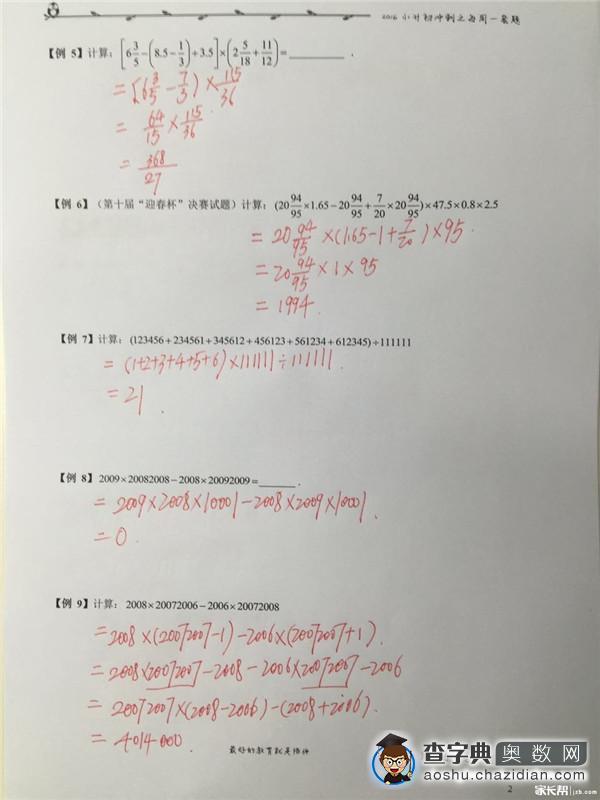 2016小升初冲刺之每周一套题
【例 5】计算：[6 3/5 −(8.5− 1/3)+3.5]×(2 5/18 + 11/12)=________ .
= [6 3/5 − 7/3) × 115/36
= 64/15 × 115/36
= 368/27
【例 6】（第十届“迎春杯”决赛试题）计算：(20 94/95 ×1.65−20 94/95 + 7/20 ×20 94/95)×47.5×0.8×2.5
= 20 94/95 ×(1.65−1+ 7/20 )×95
= 20 94/95 ×1×95
= 1994.
【例 7】计算：(123456+234561+345612+456123+561234+612345)÷111111
= (1+2+3+4+5+6)×111111÷111111.
= 21.
【例 8】2009×20082008−2008×20092009=______ .
= 2009×2008×10001−2008×2009×10001.
= 0.
【例 9】计算：2008×20072006−2006×20072008
=2008×(20072007−1)−2006×(20072007+1).
= 2008×20072007−2008−2006×20072007−2006
= 20072007×(2008−2006)−(2008+2006).
= 4014000.
最好的教育就是陪伴
2
查字典奥数网
aoshu.chazidian.com
家长帮 jzb.com